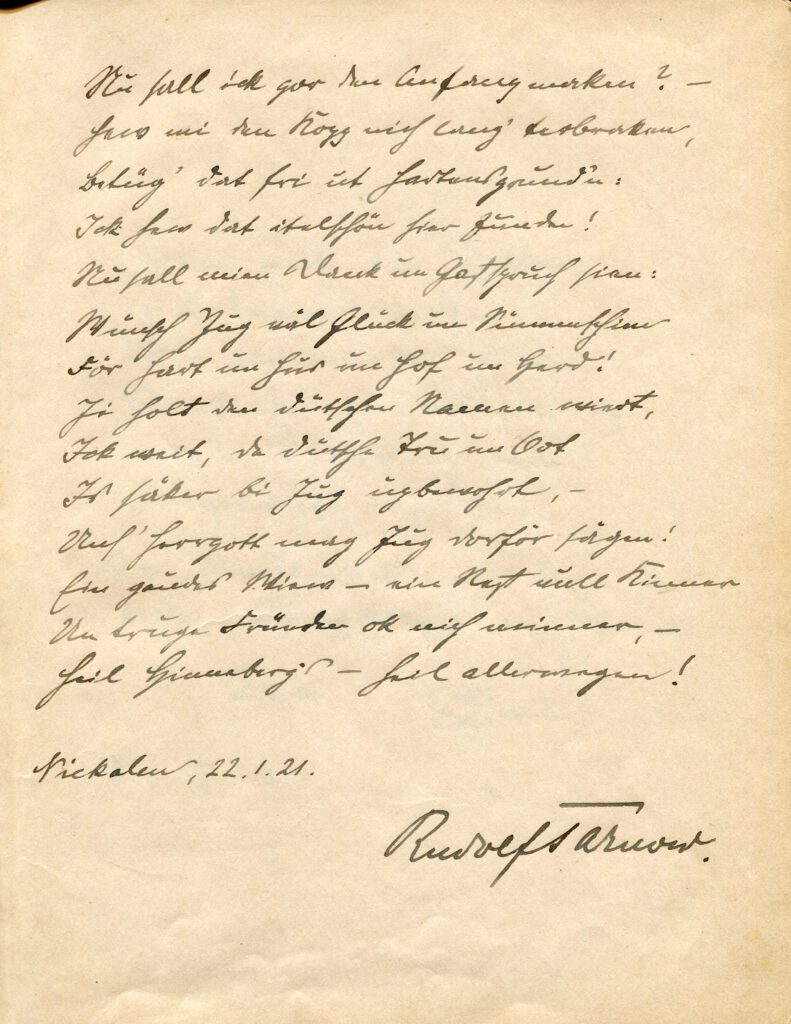 Nu sall ick gor den Anfang maken? –
Hew mi den Kopp nich lang' terbraken,
Betüg' dat fri ut Hartensgrund'n:
Ick hew dat itelschön hier funden!
Nu sall mien Dank un Gastspruch sien:
Wünsch Jug väl Glück un Sünnenschien
För Hart un Hus un Hof un Herd!
Ji holt den dütschen Namen wiert,
Ick weit, de dütsche Tru un Oort
Is säker bi Jug upbewohrt, –
Uns' Herrgott mag Jug dorför sägen!
Ein gaudes Wiew – ein Nest vull Kinner
Un truge Fründen ok nich minner, –
Heil Hinnebergs – Heil allerwegen!
Nickalen, 22.1.21.
Rudolf Tarnow.